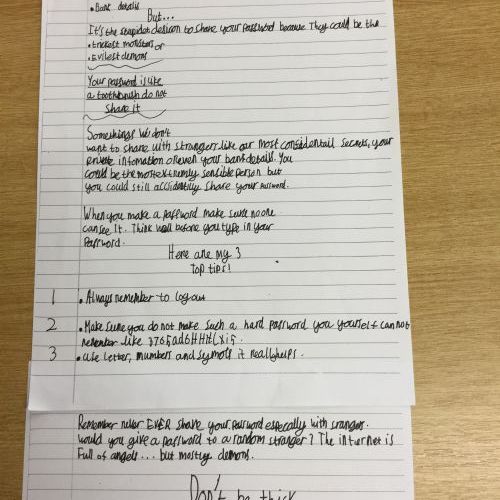 • Bank details
But...
It's the stupidst desison to share your password because They could be the
• trickest monsters or
• Evilest demons
Your password is like
a toothbrush do not
Share it
Somethings we don't
want to share with strangers like our most considentail secrets, your
private infomation or even your bank details. You
could be the most extremly sensible person but
you could still accidentilly share your password.
When you make a password make sure no one
can see it. Think well before you type in your
Password.
Here are my 3
top tips!
1 • Always remember to log out
2 • Make sure you do not make such a hard password you yourself cannot
remember like
3 • use letter, numbers and symols it really helps.
Remember never EVER share your password especially with srangers.
Would you give a password to a random stranger? The internet is
Full of angels... but mostly demons.
Don't be thick